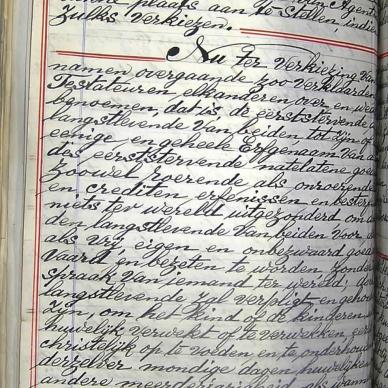 plaats aan te stellen, indien
zulks verkiezen.
Nu ter verkiezing van
namen overgaande zoo verklaarden
Testateuren elkanderen over en weder
benoemen, dat is, de eerststervende de
langstlevende van beiden tot zijn of
eenige en geheele Erfgenaam van a
des eerststervende natelatene goe
zoowel roerende als onroerende
en crediten, erfenissen en besterf
niets ter wereld uitgezonderd om d
den langstlevende van beiden voor
als vrij eigen en onbezwaard goe
vaard en bezeten te worden, zonder
spraak van jemand ter wereld,
langstlevende zal verpligt en geho
zijn, om het kind of de kinderen
huwelijk verwekt of te verwekken, eer
christelijk op te voeden en te onderhou
derzelver mondige dagen, huwelijk
andere meerderjarigheid